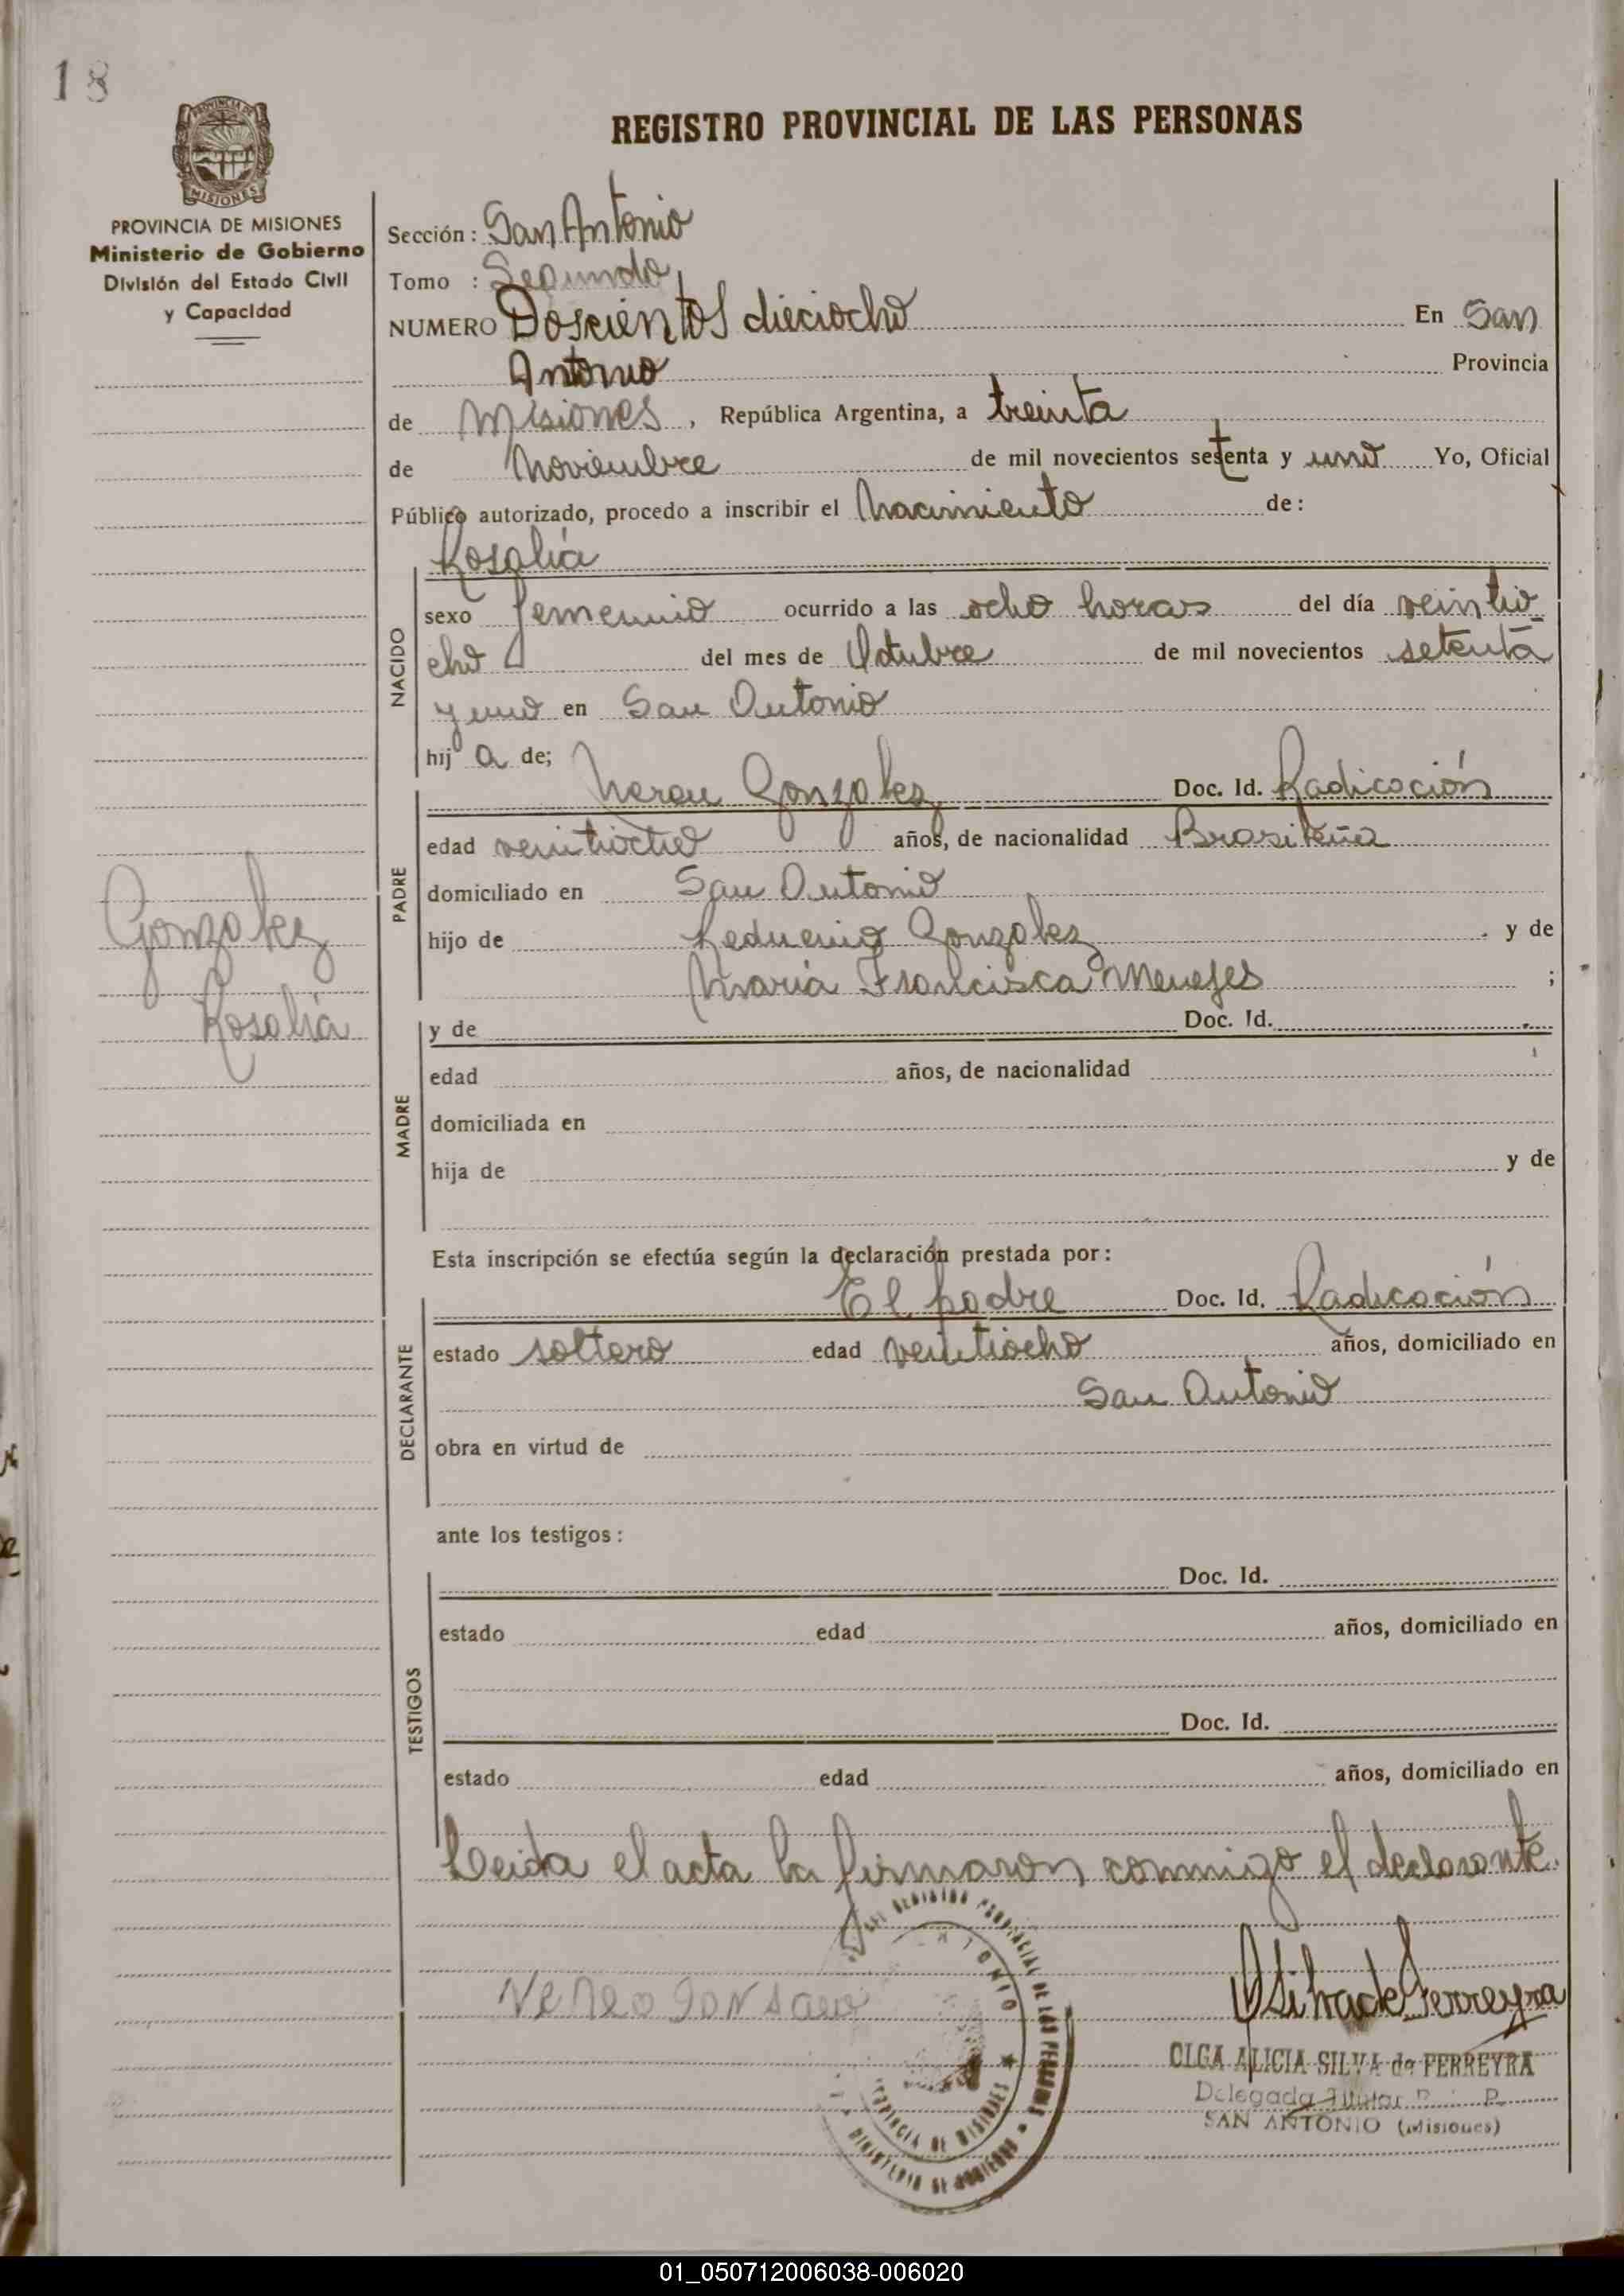 18
REGISTRO PROVINCIAL DE LAS PERSONAS
PROVINCIA DE MISIONES
Ministerio de Gobierno
División del Estado Civil
y Capacidad
Sección: San Antonio
Tomo : Segundo
NUMERO Doscientos dieciocho En San
Antonio Provincia
de Misiones, República Argentina, a treinta
de Noviembre de mil novecientos setenta y uno Yo, Oficial
Público autorizado, procedo a inscribir el Nacimiento de:
Rosalía
NACIDO
sexo femenino ocurrido a las ocho horas del día veintio
cho del mes de Octubre de mil novecientos setenta
y uno en San Antonio
hij a de;
PADRE
Gonzalez Doc. Id. Radicación
edad veintiocho años, de nacionalidad Brasileña
domiciliado en San Antonio
hijo de Gonzalez y de
María Francisca Meneses ;
Gonzalez
Rosalía
MADRE
y de Doc. Id.
edad años, de nacionalidad
domiciliada en
hija de y de
Esta inscripción se efectúa según la declaración prestada por:
DECLARANTE
El padre Doc. Id. Radicación
estado soltero edad veintiocho años, domiciliado en
San Antonio
obra en virtud de
ante los testigos:
TESTIGOS
Doc. Id.
estado edad años, domiciliado en
Doc. Id.
estado edad años, domiciliado en
Leida el acta la firmaron conmigo el declarante.
OSilva de Ferreyra
OLGA ALICIA SILVA de FERREYRA
Delegada Titular
SAN ANTONIO (Misiones)
PROVINCIA DE MISIONES
MINISTERIO DE GOBIERNO
01_050712006038-006020